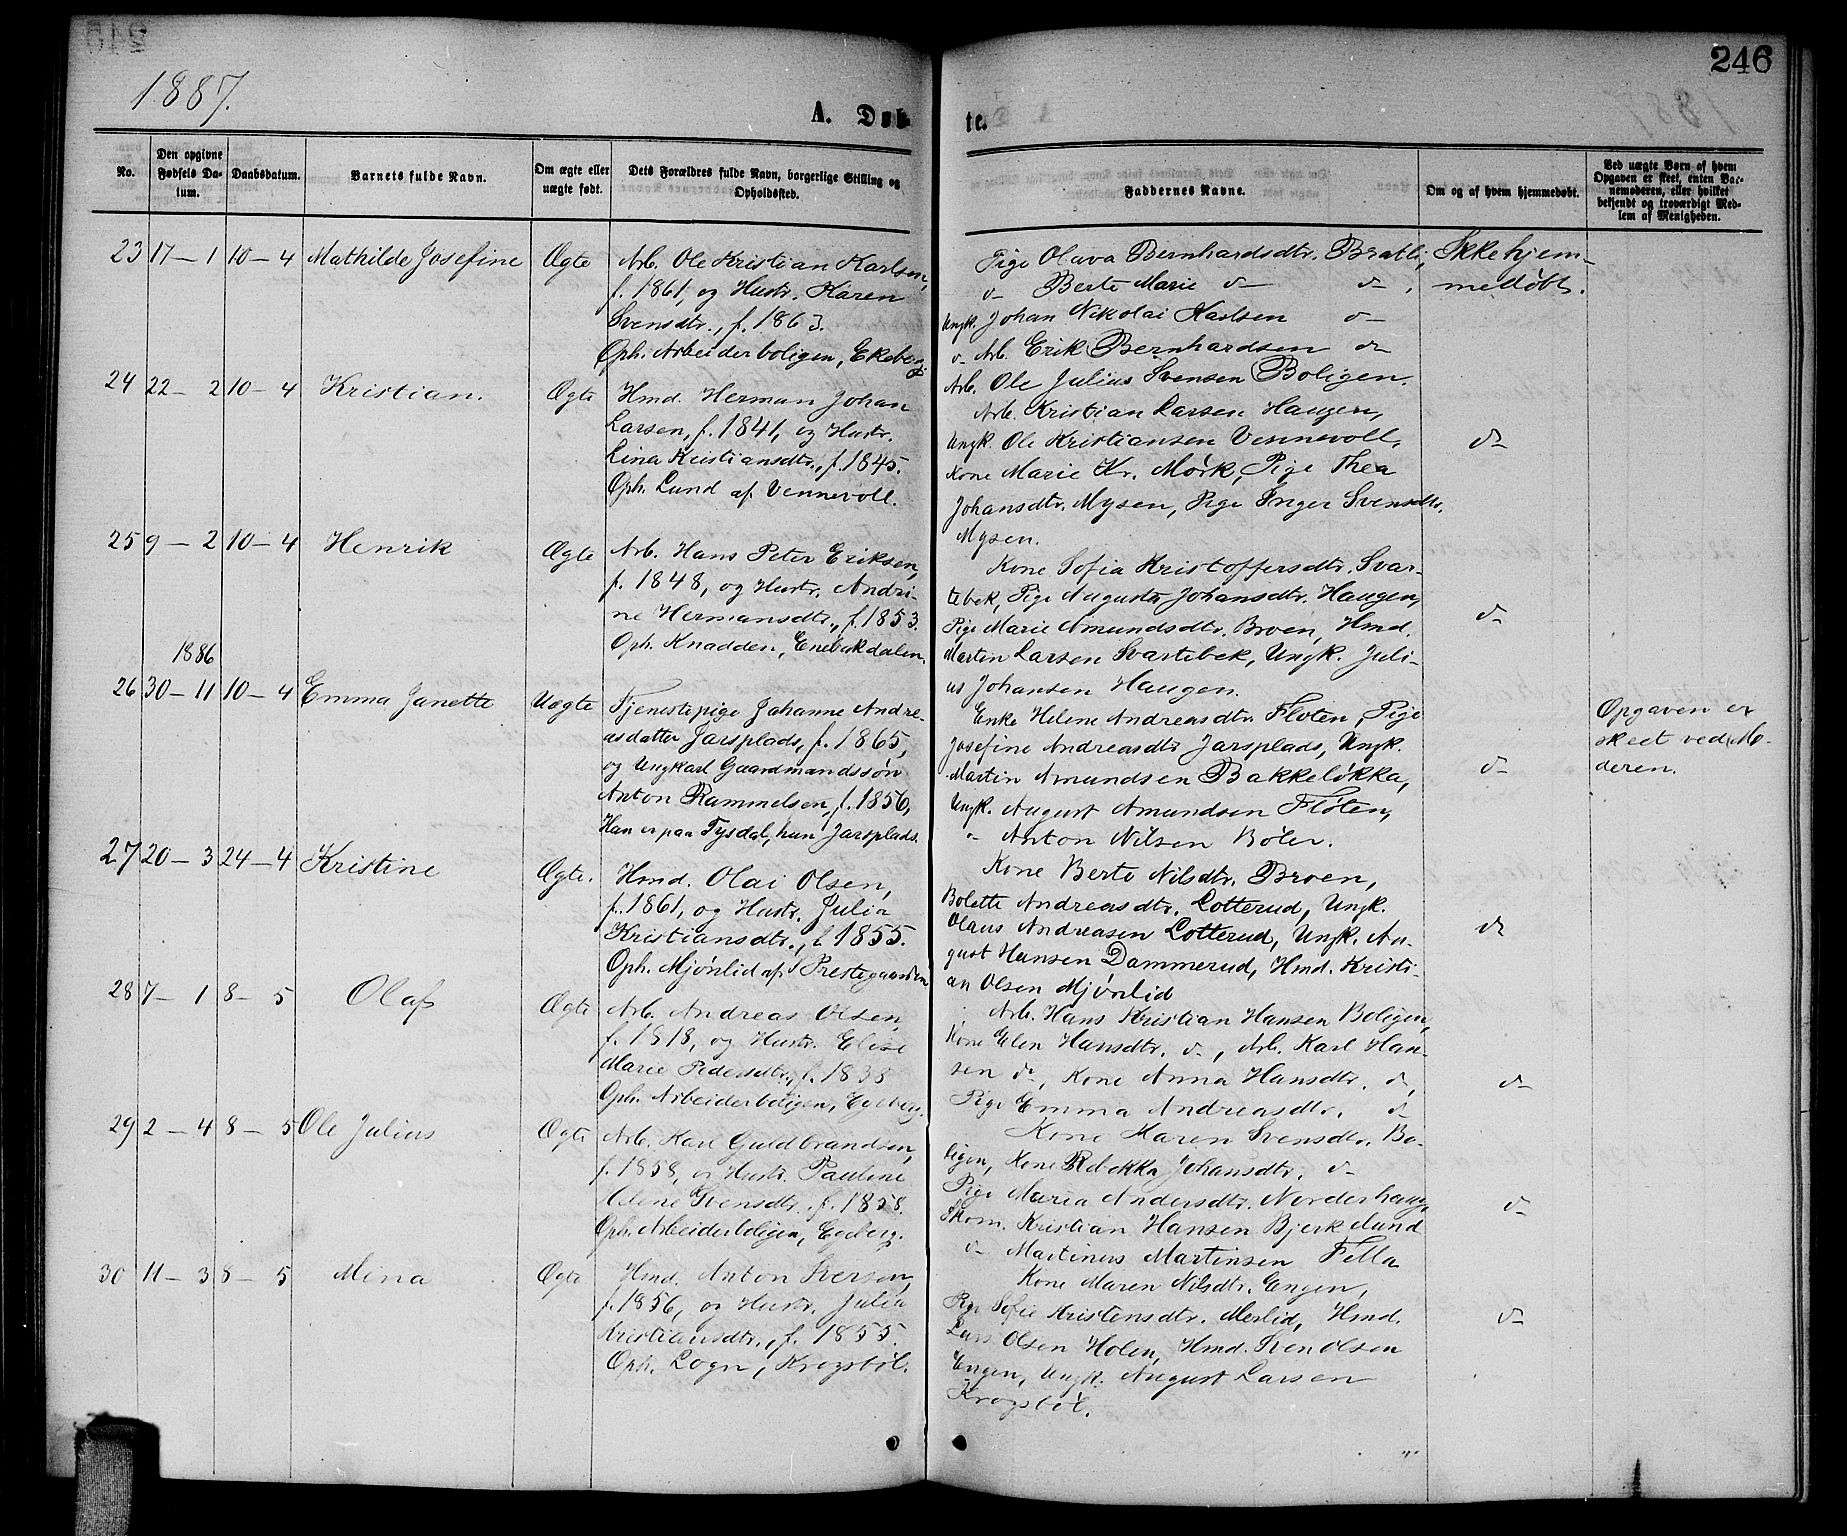 246
1887.
A. Døb-
te.
No.
Den opgivne Fødsels Da-
tum.
Daabsdatum.
Barnets fulde Navn.
Om ægte eller uægte født.
Dets Forældres fulde Navn, borgerlige Stilling og Opholdssted.
Faddernes Navne.
Om og af hvem hjemmedøbt.
Ved uægte Børn af hvem
Opgaven er skeet, enten Bar-
nemoderen, eller hvilket
bekjendt og troværdigt Med-
lem af Menigheden.
23 17-1 10-4 Mathilde Josefine Ægte
Arb. Ole Kristian Karlsen,
f. 1861, og Hustr. Karen
Svensdtr., f. 1863.
Oph. Arbeiderboligen, Ekeberg
Pige Olava Bernhardsdtr. Bratli,
d- Berte Marie d- d-,
Ungk. Johan Nikolai Karlsen d-
d- Arb. Erik Bernhardsen d-
Arb. Ole Julius Svensen Boligen.
Ikke hjem-
medøbt.
24 22-2 10-4 Kristian. Ægte
Hmd. Herman Johan
Larsen, f. 1841, og Hustr.
Lina Kristiansdtr., f. 1845.
Oph. Lund af Vennevoll.
Arb. Kristian Larsen Haugen,
Ungk. Ole Kristiansen Vennevoll,
Kone Marie Kr. Mørk, Pige Thea
Johansdtr. Mysen, Pige Inger Svensdtr.
Mysen.
d-
25 9-2 10-4 Henrik Ægte
Arb. Hans Peter Eriksen,
f. 1848, og Hustr. Andri-
ne Hermansdtr., f. 1853.
Oph. Knadden, Enebakdalen.
Kone Sofia Kristoffersdtr. Svar-
tebek, Pige Augusta Johansdtr. Haugen,
Pige Marie Amundsdtr. Broen, Hmd.
Martin Larsen Svartebek, Ungk. Juli-
us Johansen Haugen.
d-
1886
26 30-11 10-4 Emma Janette Uægte
Tjenestepige Johanne Andre-
asdatter Jarsplads, f. 1865,
og Ungkarl Gaardmandssøn
Anton Rammelsen, f. 1856,
Han er paa Tysdal, hun Jarsplads.
Enke Helene Andreasdtr. Fløten, Pige
Josefine Andreasdtr. Jarsplads, Ungk.
Martin Amundsen Bakkeløkka,
Ungk. August Amundsen Fløten,
d- Anton Nilsen Bøler.
d-
Opgaven er
skeet ved Mo-
deren.
27 20-3 24-4 Kristine Ægte.
Hmd. Olai Olsen,
f. 1861, og Hustr. Julia
Kristiansdtr., f. 1855.
Oph. Mjønlid af Prestegaarden
Kone Berte Nilsdtr. Broen,
Bolette Andreasdtr. Lotterud, Ungk.
Olaus Andreasen Lotterud, Ungk. Au-
gust Hansen Dammerud, Hmd. Kristi-
an Olsen Mjønlid
d-
28 7-1 8-5 Olaf Ægte
Arb. Andreas Olsen,
f. 1818, og Hustr. Elise
Marie Pedersdtr., f. 1838
Oph. Arbeiderboligen, Egeberg.
Arb. Hans Kristian Hansen Boligen,
Kone Elen Hansdtr. d-, Arb. Karl Han-
sen d-, Kone Anna Hansdtr. d-,
Pige Emma Andreasdtr. d-
d-
29 2-4 8-5 Ole Julius Ægte
Arb. Karl Guldbrandsen,
f. 1858, og Hustr. Pauline
Svensdtr., f. 1858.
Oph. Arbeiderboligen, Egeberg.
Kone Maren Svensdtr. Bo-
ligen, Kone Rebekka Johansdtr. d-
Pige Maria Andersdtr. Norderhaug,
Skom. Kristian Hansen Bjerkelund
d- Martinus Martinsen Fella
d-
30 11-3 8-5 Mina Ægte
Hmd. Anton Iversen,
f. 1856, og Hustr. Julia
Kristiansdtr., f. 1855.
Oph. Logn, Krogsbøl.
Kone Maren Nilsdtr. Engen,
Pige Sofie Kristensdtr. Merlid, Hmd.
Lars Olsen Holen, Hmd. Sven Olsen
Engen, Ungk. August Larsen
Krogsbøl.
d-